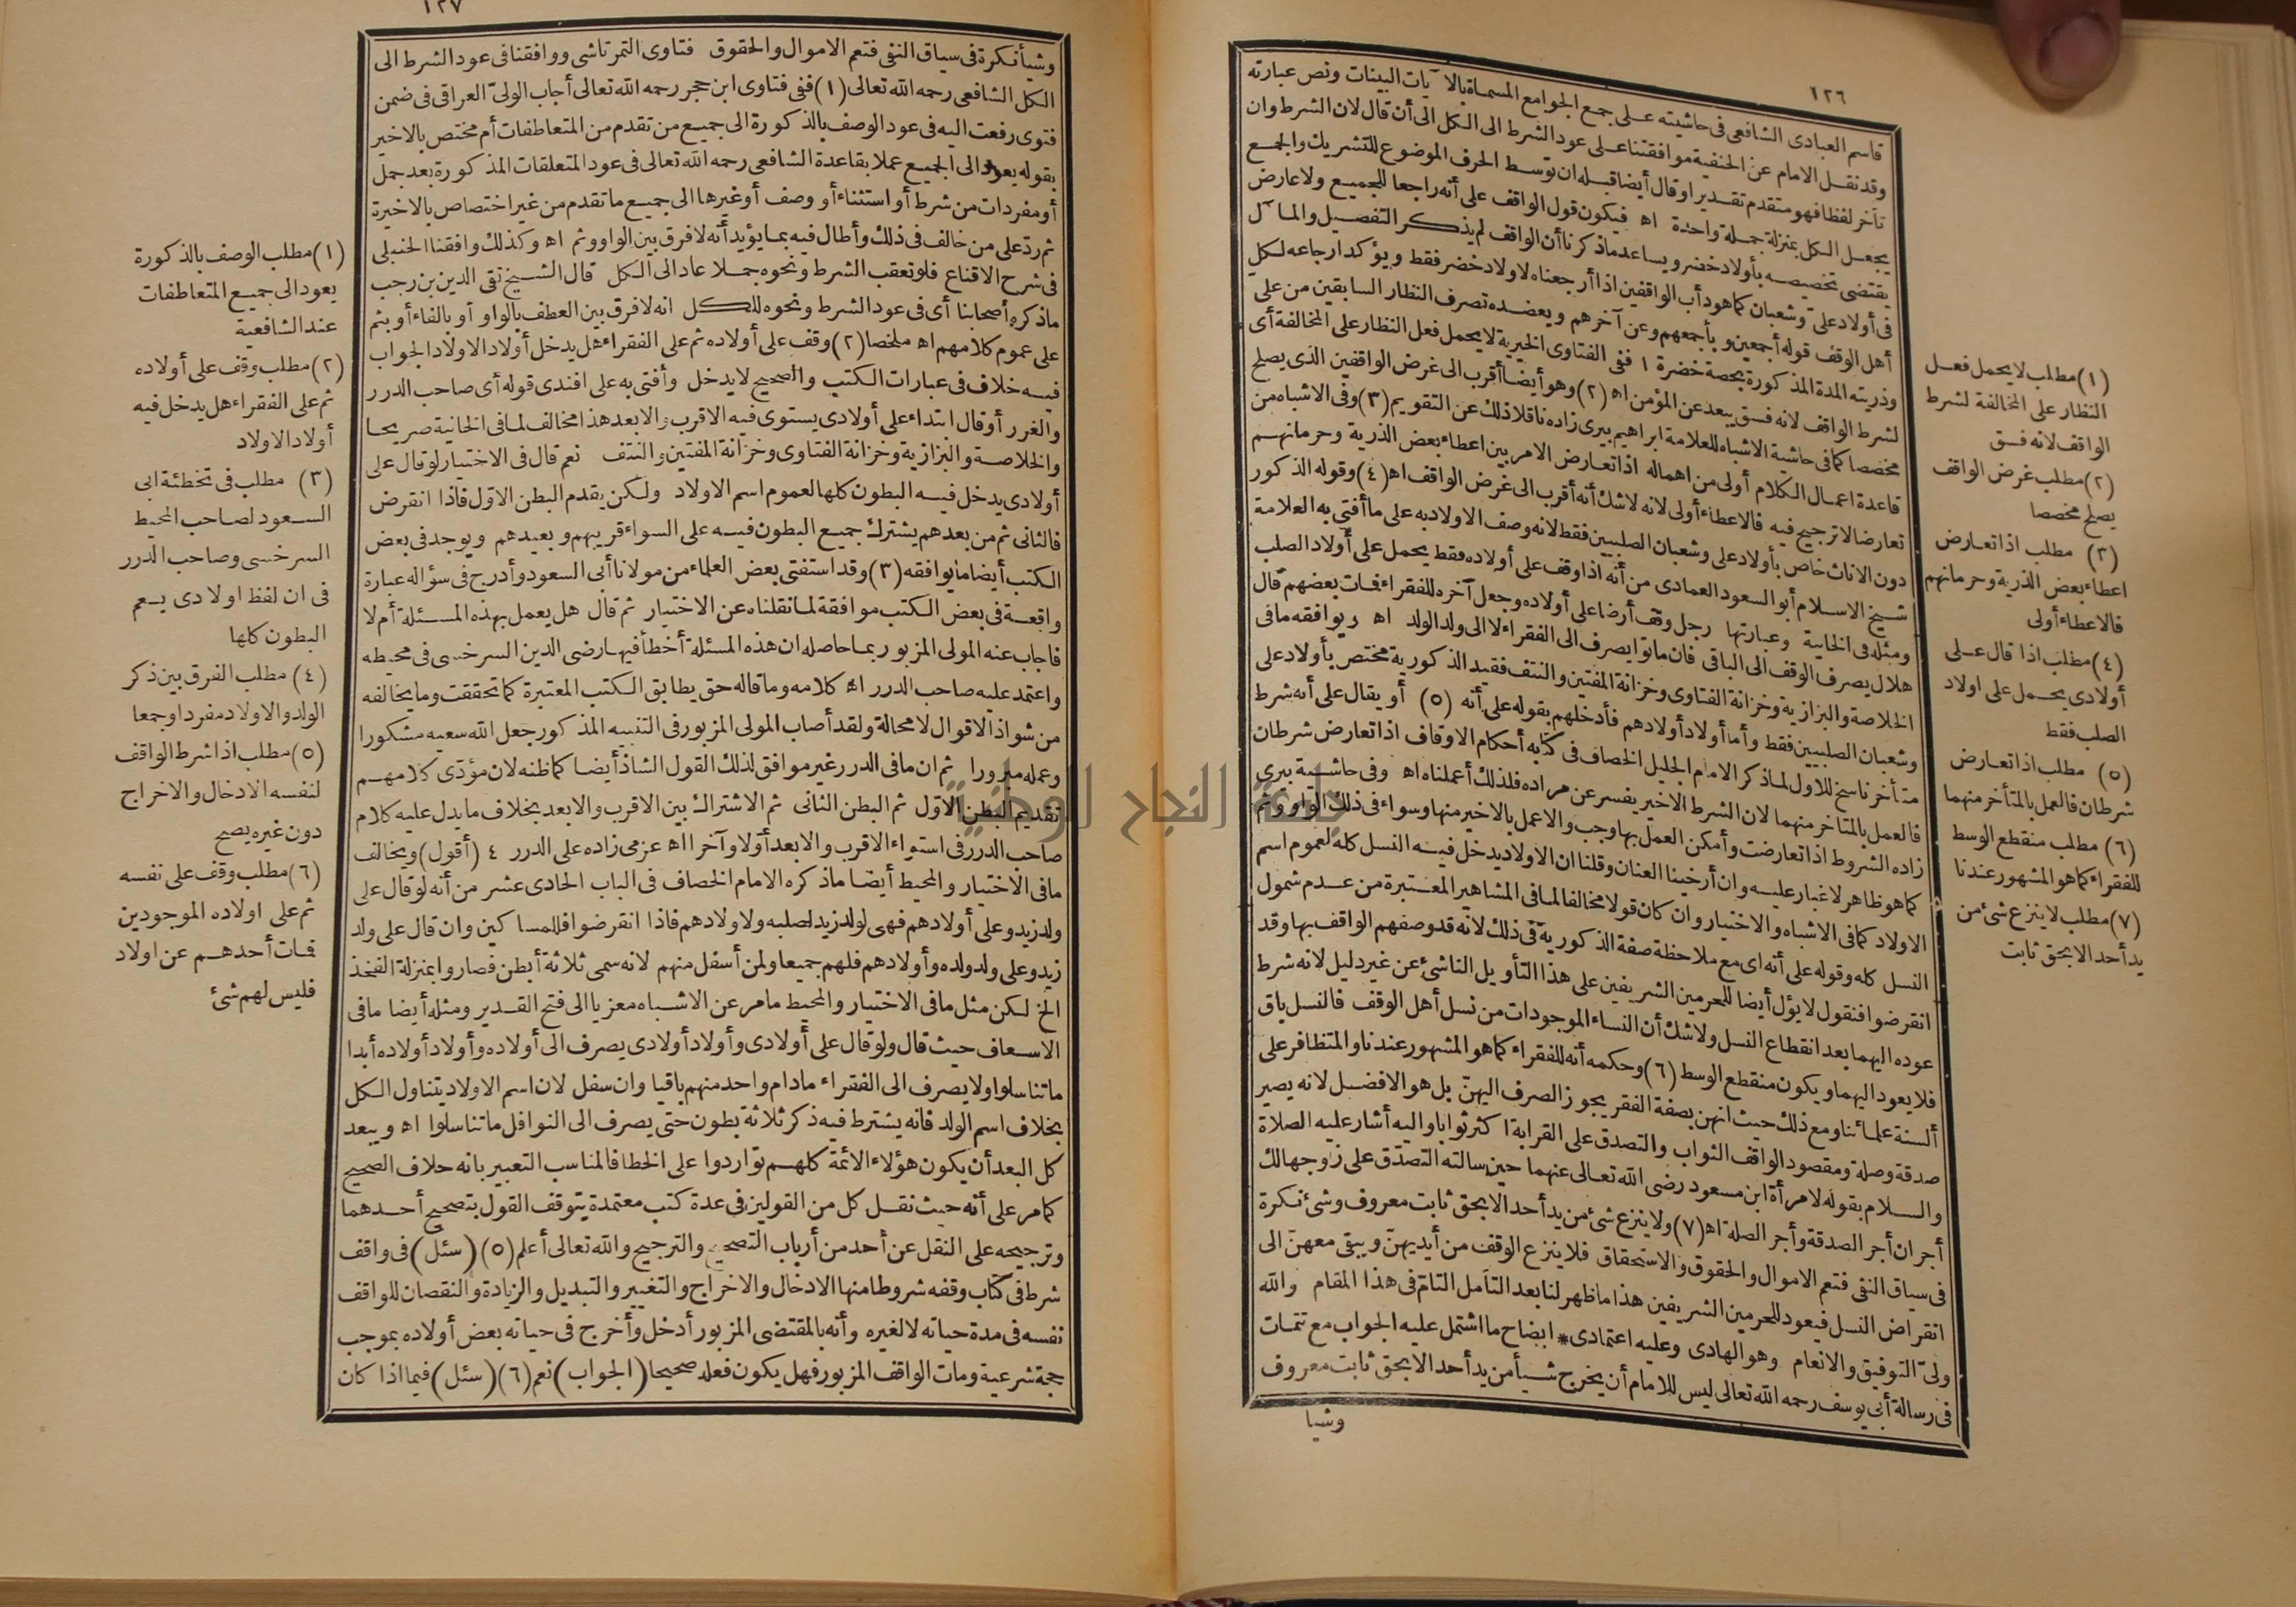 ١٢٦
قاسم العبادى الشافعى فى حاشيته على جمع الجوامع المسماة بالآيات البينات ونص عبارته
وقد نقل الامام عن الحنفية موافقتنا على عود الشرط الى الكل الى أن قال لان الشرط وان
تأخر لفظا فهو متقدم تقديرا وقال أيضا قبله ان توسط الحرف الموضوع للتشريك والجمع
يجعل الكل بمنزلة جملة واحدة اه فيكون قول الواقف على أنه راجعا للجميع ولا عارض
يقتضى تخصيصه بأولاد خضر ويساعد ماذكرنا أن الواقف لم يذكر التفصيل والمآل
فى أولاد على وشعبان كما هو دأب الواقفين اذا أرجعناه لاولاد خضر فقط ويؤكد ارجاعه لكل
أهل الوقف قوله أجمعين وبأجمعهم وعن آخرهم ويعضده تصرف النظار السابقين من على
وذريته المدة المذكورة بحصة خضرة ١ ففى الفتاوى الخيرية لا يحمل فعل النظار على المخالفة أى
لشرط الواقف لانه فسق يبعد عن المؤمن اه (٢) وهو أيضا أقرب الى غرض الواقفين الذى يصلح
مخصصا كما فى حاشية الاشباه للعلامة ابراهيم بيرى زاده ناقلا ذلك عن التقويم (٣) وفى الاشباه من
قاعدة اعمال الكلام أولى من اهماله اذا تعارض الامر بين اعطاء بعض الذرية وحرمانهم
تعارضا لا ترجيح فيه فالاعطاء أولى لانه لاشك أنه أقرب الى غرض الواقف اه (٤) وقوله الذكور
دون الاناث خاص بأولاد على وشعبان الصلبيين فقط لانه وصف الاولاد به على ما أفتى به العلامة
شيخ الاسلام أبو السعود العمادى من أنه اذا وقف على أولاده فقط يحمل على أولاد الصلب
ومثله فى الخانية وعبارتها رجل وقف أرضا على أولاده وجعل آخره للفقراء فمات بعضهم قال
هلال يصرف الوقف الى الباقى فان ماتوا يصرف الى الفقراء لا الى ولد الولد اه ويوافقه مافى
الخلاصة والبزازية وخزانة الفتاوى وخزانة المفتين والنتف فقيد الذكورية مختص بأولاد على
وشعبان الصلبيين فقط وأما أولاد أولادهم فأدخلهم بقوله على أنه (٥) أو يقال على أنه شرط
متأخر ناسخ للاول لما ذكر الامام الجليل الخصاف فى كتابه أحكام الاوقاف اذا تعارض شرطان
فالعمل بالمتأخر منهما لان الشرط الاخير يفسر عن مراده فلذلك أعملناه اه وفى حاشية بيرى
زاده الشروط اذا تعارضت وأمكن العمل بها وجب والا عمل بالاخير منها وسواء فى ذلك الواو وثم
كما هو ظاهر لا غبار عليه وان أرخينا العنان وقلنا ان الاولاد يدخل فيه النسل كله لعموم اسم
الاولاد كما فى الاشباه والاختيار وان كان قولا مخالفا لما فى المشاهير المعتبرة من عدم شمول
النسل كله وقوله على أنه اى مع ملاحظة صفة الذكورية فى ذلك لانه قد وصفهم الواقف بها وقد
انقرضوا فنقول لا يؤل أيضا للحرمين الشريفين على هذا التأويل الناشئ عن غير دليل لانه شرط
عوده اليهما بعد انقطاع النسل ولاشك أن النساء الموجودات من نسل أهل الوقف فالنسل باق
فلا يعود اليهما ويكون منقطع الوسط (٦) وحكمه أنه للفقراء كما هو المشهور عندنا والمتظافر على
ألسنة علمائنا ومع ذلك حيث انهن بصفة الفقر يجوز الصرف اليهن بل هو الافضل لانه يصير
صدقة وصلة ومقصود الواقف الثواب والتصدق على القرابة اكثر ثوابا واليه أشار عليه الصلاة
والسلام بقوله لامرأة ابن مسعود رضى الله تعالى عنهما حين سالته التصدق على زوجها لك
أجران أجر الصدقة وأجر الصلة اه (٧) ولا ينزع شئ من يد أحد الا بحق ثابت معروف وشئ نكرة
فى سياق النفى فتعم الاموال والحقوق والاستحقاق فلا ينزع الوقف من أيديهن ويبقى معهن الى
انقراض النسل فيعود للحرمين الشريفين هذا ما ظهر لنا بعد التأمل التام فى هذا المقام والله
ولى التوفيق والانعام وهو الهادى وعليه اعتمادى * ايضاح ما اشتمل عليه الجواب مع تتمات
فى رسالة أبى يوسف رحمه الله تعالى ليس للامام أن يخرج شيأ من يد أحد الا بحق ثابت معروف
وشيا
(١) مطلب لا يحمل فعل
النظار على المخالفة لشرط
الواقف لانه فسق
(٢) مطلب غرض الواقف
يصلح مخصصا
(٣) مطلب اذا تعارض
اعطاء بعض الذرية وحرمانهم
فالاعطاء أولى
(٤) مطلب اذا قال على
أولادى يحمل على اولاد
الصلب فقط
(٥) مطلب اذا تعارض
شرطان فالعمل بالمتأخر منهما
(٦) مطلب منقطع الوسط
للفقراء كما هو المشهور عندنا
(٧) مطلب لا ينزع شئ من
يد أحد الا بحق ثابت
١٢٧
وشيأ نكرة فى سياق النفى فتعم الاموال والحقوق فتاوى التمرتاشى ووافقنا فى عود الشرط الى
الكل الشافعى رحمه الله تعالى (١) ففى فتاوى ابن حجر رحمه الله تعالى أجاب الولى العراقى فى ضمن
فتوى رفعت اليه فى عود الوصف بالذكورة الى جميع من تقدم من المتعاطفات أم مختص بالاخير
بقوله يعود الى الجميع عملا بقاعدة الشافعى رحمه الله تعالى فى عود المتعلقات المذكورة بعد جمل
أو مفردات من شرط أو استثناء أو وصف أو غيرها الى جميع ما تقدم من غير اختصاص بالاخيرة
ثم رد على من خالف فى ذلك وأطال فيه بما يؤيد أنه لا فرق بين الواو وثم اه وكذلك وافقنا الحنبلى
فى شرح الاقناع فلو تعقب الشرط ونحوه جملا عاد الى الكل قال الشيخ تقى الدين بن رجب
ماذكره أصحابنا أى فى عود الشرط ونحوه للكل انه لا فرق بين العطف بالواو أو بالفاء أو بثم
على عموم كلامهم اه ملخصا (٢) وقف على أولاده ثم على الفقراء هل يدخل أولاد الاولاد الجواب
فيه خلاف فى عبارات الكتب والصحيح لا يدخل وأفتى به على افندى قوله أى صاحب الدرر
والغرر أو قال ابتداء على أولادى يستوى فيه الاقرب والابعد هذا مخالف لما فى الخانية صريحا
والخلاصة والبزازية وخزانة الفتاوى وخزانة المفتين والنتف نعم قال فى الاختيار لو قال على
أولادى يدخل فيه البطون كلها لعموم اسم الاولاد ولكن يقدم البطن الاول فاذا انقرض
فالثانى ثم من بعدهم يشترك جميع البطون فيه على السواء قريبهم وبعيدهم ويوجد فى بعض
الكتب أيضا ما يوافقه (٣) وقد استفتى بعض العلماء من مولانا أبى السعود وأدرج فى سؤاله عبارة
واقعة فى بعض الكتب موافقة لما نقلناه عن الاختيار ثم قال هل يعمل بهذه المسئلة أم لا
فاجاب عنه المولى المزبور بما حاصله ان هذه المسئلة أخطأ فيها رضى الدين السرخسى فى محيطه
واعتمد عليه صاحب الدرر اه كلامه وما قاله حق يطابق الكتب المعتبرة كما تحققت وما يخالفه
من شواذ الاقوال لا محالة ولقد أصاب المولى المزبور فى التنبيه المذكور جعل الله سعيه مشكورا
وعمله مبرورا ثم ان مافى الدرر غير موافق لذلك القول الشاذ أيضا كما ظنه لان مؤدى كلامهم
تقديم البطن الاول ثم البطن الثانى ثم الاشتراك بين الاقرب والابعد بخلاف ما يدل عليه كلام
صاحب الدرر فى استواء الاقرب والابعد أولا وآخرا اه عزمى زاده على الدرر ٤ (أقول) ويخالف
مافى الاختيار والمحيط أيضا ماذكره الامام الخصاف فى الباب الحادى عشر من أنه لو قال على
ولد زيد وعلى أولادهم فهى لولد زيد لصلبه ولاولادهم فاذا انقرضوا فللمساكين وان قال على ولد
زيد وعلى ولد ولده وأولادهم فلهم جميعا ولمن أسفل منهم لانه سمى ثلاثة أبطن فصاروا بمنزلة الفخذ
الخ لكن مثل مافى الاختيار والمحيط مامر عن الاشباه معزيا الى فتح القدير ومثله أيضا مافى
الاسعاف حيث قال ولو قال على أولادى وأولاد أولادى يصرف الى أولاده وأولاد أولاده أبدا
ما تناسلوا ولا يصرف الى الفقراء مادام واحد منهم باقيا وان سفل لان اسم الاولاد يتناول الكل
بخلاف اسم الولد فانه يشترط فيه ذكر ثلاثة بطون حتى يصرف الى النوافل ما تناسلوا اه ويبعد
كل البعد أن يكون هؤلاء الائمة كلهم تواردوا على الخطا فالمناسب التعبير بانه خلاف الصحيح
كما مر على أنه حيث نقل كل من القولين فى عدة كتب معتمدة يتوقف القول بتصحيح أحدهما
وترجيحه على النقل عن أحد من أرباب التصحيح والترجيح والله تعالى أعلم (٥) (سئل) فى واقف
شرط فى كتاب وقفه شروطا منها الادخال والاخراج والتغيير والتبديل والزيادة والنقصان للواقف
نفسه فى مدة حياته لا لغيره وأنه بالمقتضى المزبور أدخل وأخرج فى حياته بعض أولاده بموجب
حجة شرعية ومات الواقف المزبور فهل يكون فعله صحيحا (الجواب) نعم (٦) (سئل) فيما اذا كان
(١) مطلب الوصف بالذكورة
يعود الى جميع المتعاطفات
عند الشافعية
(٢) مطلب وقف على أولاده
ثم على الفقراء هل يدخل فيه
أولاد الاولاد
(٣) مطلب فى تخطئة ابى
السعود لصاحب المحيط
السرخسى وصاحب الدرر
فى ان لفظ اولادى يعم
البطون كلها
(٤) مطلب الفرق بين ذكر
الولد والاولاد مفردا وجمعا
(٥) مطلب اذا شرط الواقف
لنفسه الادخال والاخراج
دون غيره يصح
(٦) مطلب وقف على نفسه
ثم على اولاده الموجودين
فمات أحدهم عن اولاد
فليس لهم شئ
جامعة النجاح الوطنية